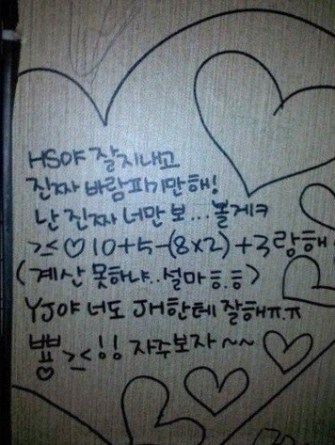 HS야 잘지내고
진짜 바람피기만해!
난 진짜 너만 보...볼게ㅋ
><♡10+5-(8×2)+3랑해
(계산 못하냐..설마ㅎ.ㅎ)
YJ야 너도 JH한테 잘해ㅠ.ㅠ
뽀><!! 자주보자~~